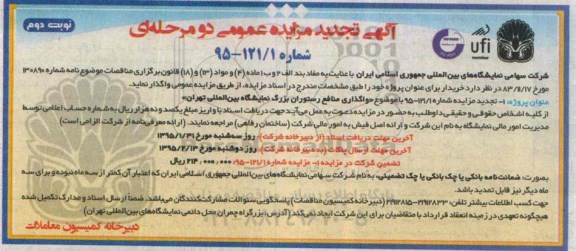 نوبت دوم
آگهی تجدید مزایده عمومی دو مرحله‌ای
شماره ۹۵-۱۲۱/۱
ufi
شرکت سهامی نمایشگاه‌های بین‌المللی جمهوری اسلامی ایران با عنایت به مفاد بند الف و ب ماده (۴) و مواد (۱۳) و (۱۸) قانون برگزاری مناقصات موضوع نامه شماره ۱۳۰۸۹۰
مورخ ۸۳/۹/۱۷ در نظر دارد خریدار برای عنوان پروژه خود را طبق مشخصات مندرج در اسناد مزایده، از طریق مزایده عمومی واگذار نماید.
عنوان پروژه: ۱- تجدید مزایده شماره ۹۵-۱۲۱/۱ با موضوع «واگذاری منافع رستوران بزرگ نمایشگاه بین‌المللی تهران»
از کلیه اشخاص حقوقی و حقیقی داوطلب به حضور در مزایده دعوت به عمل می‌آید جهت دریافت اسناد با واریز مبلغ یکصد و ده هزار ریال به شماره حساب اعلامی توسط
مدیریت امور مالی نمایشگاه به نام این شرکت و ارائه اصل فیش به امور مالی شرکت (ساختمان رفاهی) مراجعه نمایند. (ارائه معرفی‌نامه از شرکت الزامی است)
آخرین مهلت دریافت اسناد: (از دبیرخانه شرکت) روز سه‌شنبه مورخ ۱۳۹۵/۱/۳۱
آخرین مهلت ارسال پاکات (به دبیرخانه شرکت): روز دوشنبه مورخ ۱۳۹۵/۲/۱۳
تضمین شرکت در مزایده ۱- مزایده شماره ۹۵-۱۲۱/۱: ۲۱۴،۰۰۰،۰۰۰ ریال
بصورت: ضمانت‌نامه بانکی یا چک بانکی یا چک تضمینی، به نام شرکت سهامی نمایشگاه‌های بین‌المللی جمهوری اسلامی ایران که اعتبار آن کمتر از سه ماه نبوده و برای سه
ماه دیگر نیز قابل تمدید باشد.
جهت کسب اطلاعات بیشتر تلفن: ۲۱۹۱۲۸۱۵-۲۱۹۱۲۸۳۳ (دبیرخانه کمیسیون مناقصات) پاسخگویی سئوالات مشارکت‌کنندگان می‌باشد. ضمناً ارسال اسناد و مدارک تکمیل شده
هیچگونه تعهدی در زمینه انعقاد قرارداد با متقاضیان برای این شرکت ایجاد نمی‌کند (آدرس: بزرگراه چمران محل دائمی نمایشگاه‌های بین‌المللی تهران)
دبیرخانه کمیسیون معاملات